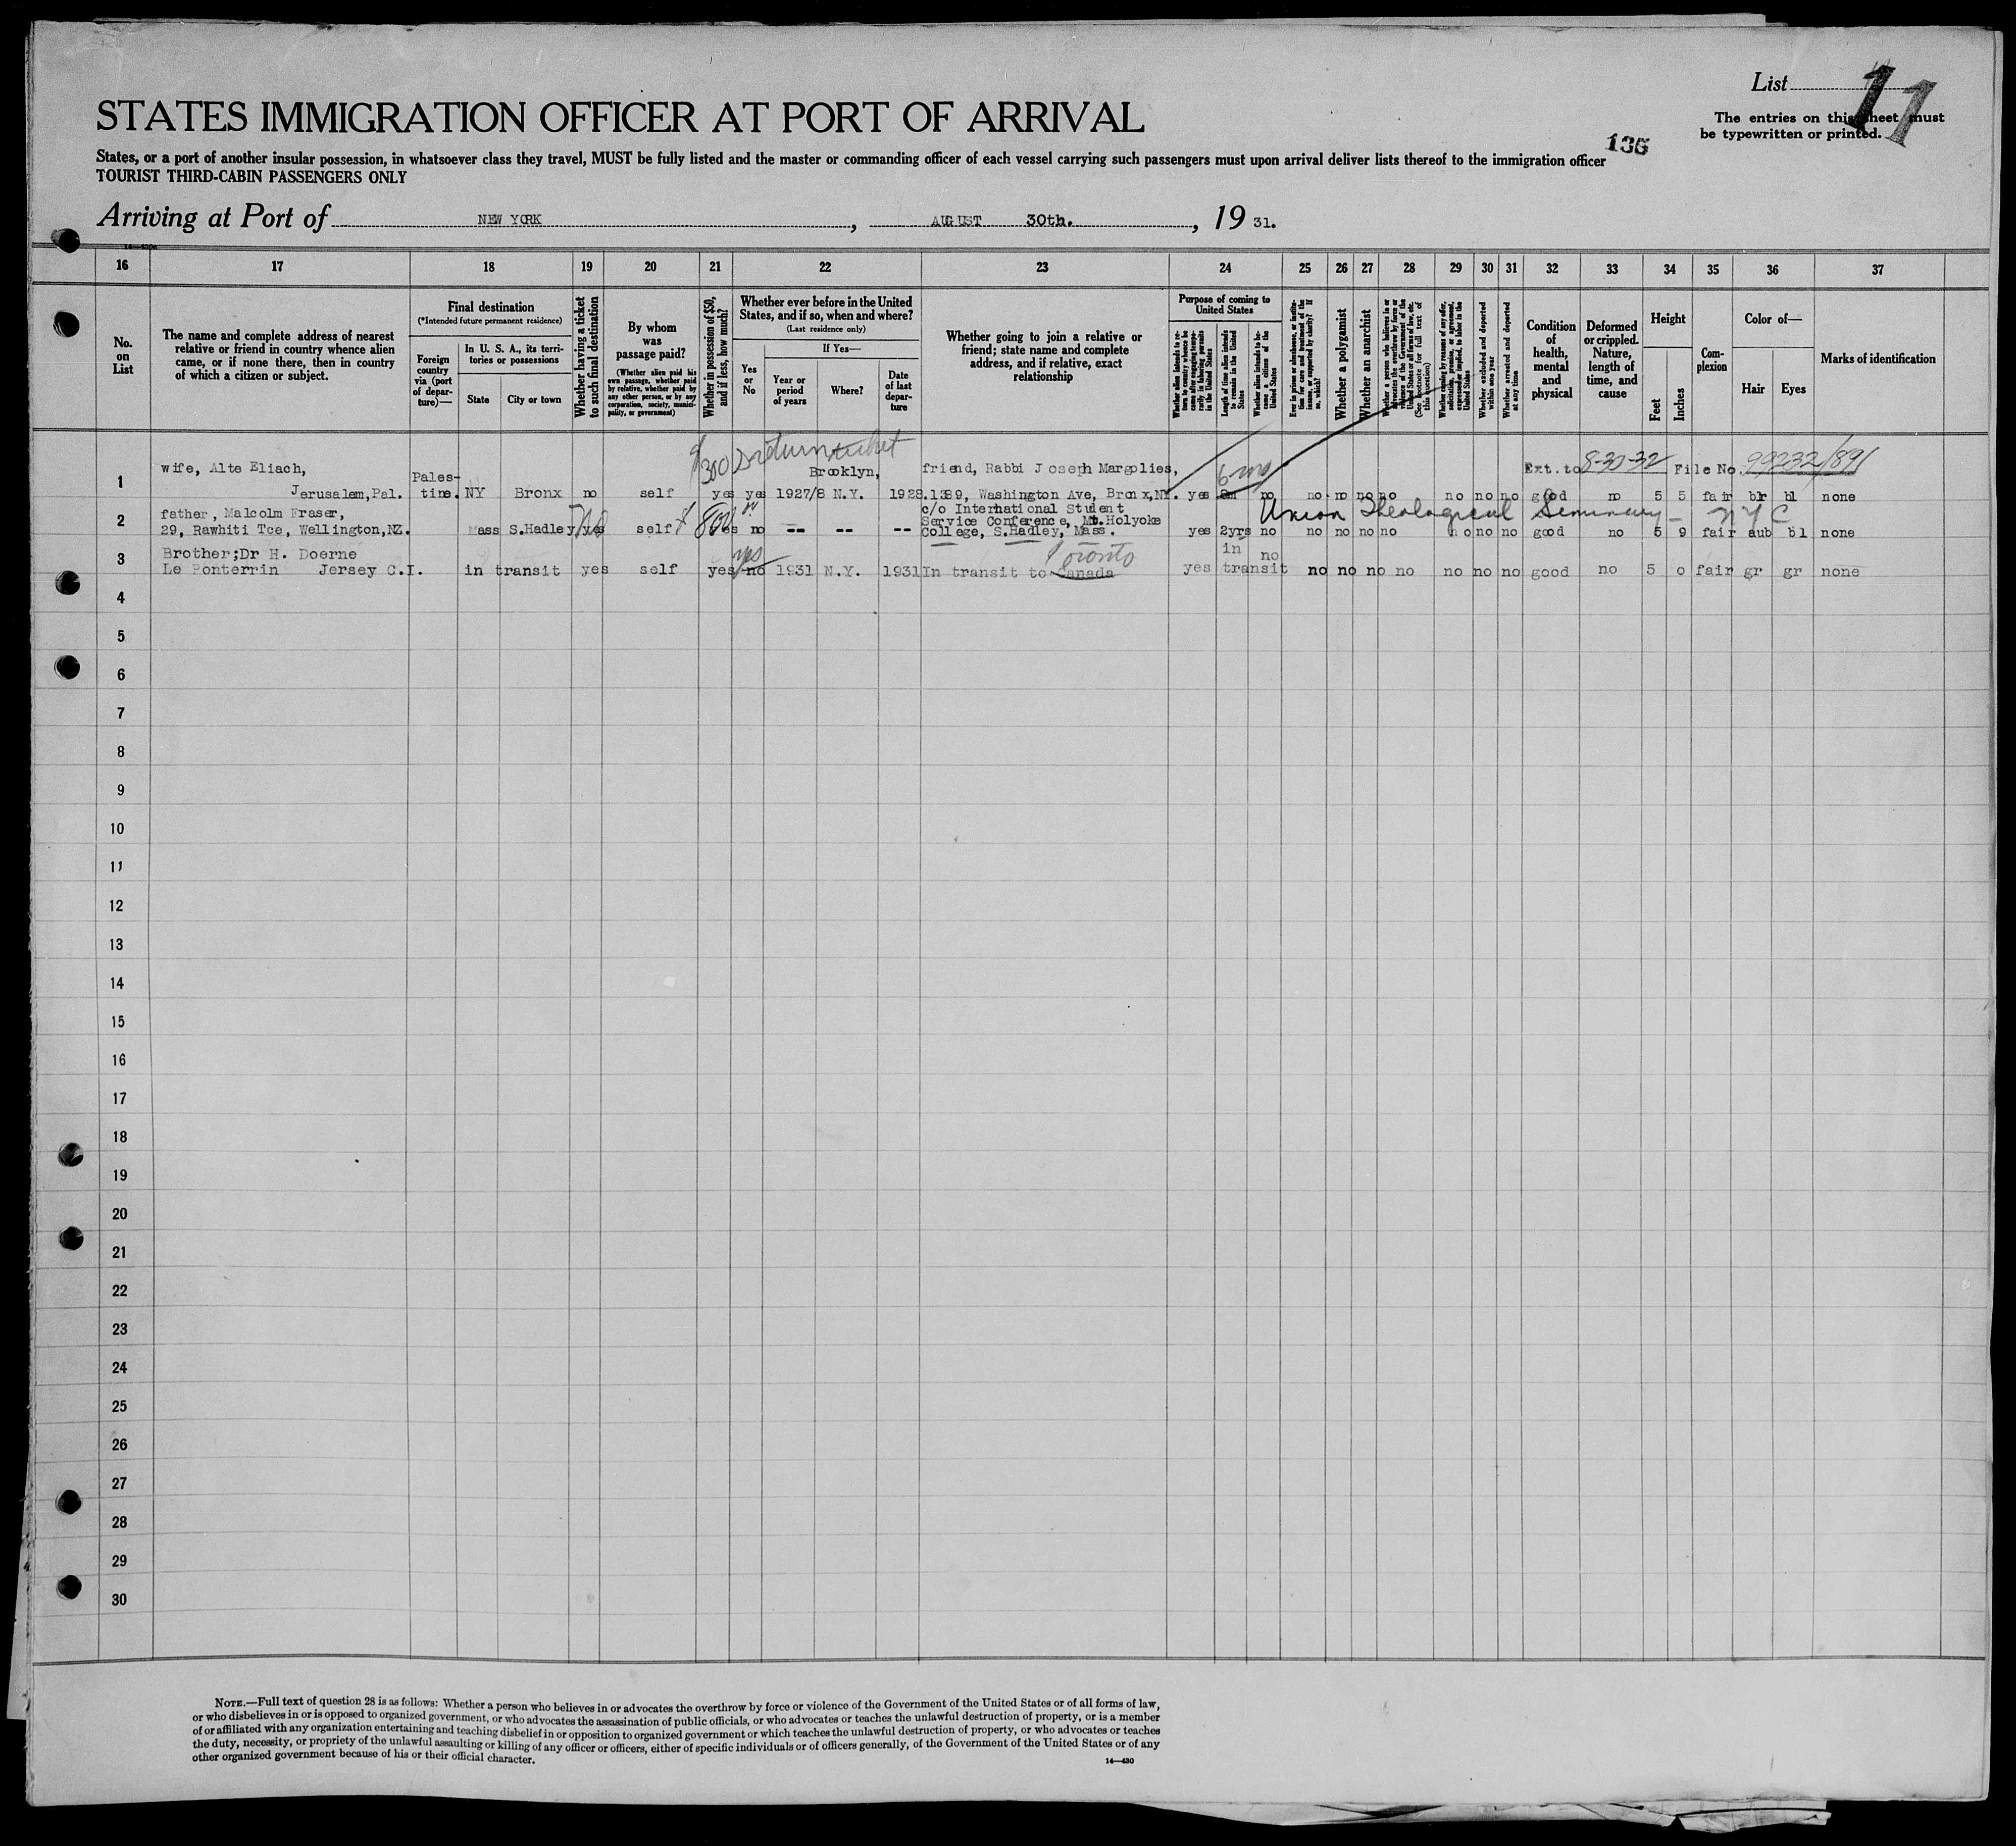 List 11
STATES IMMIGRATION OFFICER AT PORT OF ARRIVAL
The entries on this sheet must
be typewritten or printed.
135
States, or a port of another insular possession, in whatsoever class they travel, MUST be fully listed and the master or commanding officer of each vessel carrying such passengers must upon arrival deliver lists thereof to the immigration officer
TOURIST THIRD-CABIN PASSENGERS ONLY
Arriving at Port of NEW YORK, AUGUST 30th., 19 31.
16 17 18 19 20 21 22 23 24 25 26 27 28 29 30 31 32 33 34 35 36 37
No. on List
The name and complete address of nearest relative or friend in country whence alien came, or if none there, then in country of which a citizen or subject.
Final destination
(*Intended future permanent residence)
Foreign country via (port of departure)—
In U. S. A., its territories or possessions
State
City or town
Whether having a ticket to such final destination
By whom was passage paid?
(Whether alien paid his own passage, whether paid by relative, whether paid by any other person, or by any corporation, society, municipality, or government)
Whether in possession of $50, and if less, how much?
Whether ever before in the United States, and if so, when and where?
(Last residence only)
Yes or No
If Yes—
Year or period of years
Where?
Date of last departure
Whether going to join a relative or friend; state name and complete address, and if relative, exact relationship
Purpose of coming to United States
Whether alien intends to return to country whence he came after engaging temporarily in laboring pursuits in the United States
Length of time alien intends to remain in the United States
Whether alien intends to become a citizen of the United States
Ever in prison or almshouse, or institution for care and treatment of the insane, or supported by charity? If so, which?
Whether a polygamist
Whether an anarchist
Whether a person who believes in or advocates the overthrow by force or violence of the Government of the United States or all forms of law, etc. (See footnote for full text of this question)
Whether coming by reasons of any offer, solicitation, promise, or agreement, expressed or implied, to labor in the United States
Whether excluded and deported within one year
Whether arrested and deported at any time
Condition of health, mental and physical
Deformed or crippled. Nature, length of time, and cause
Height
Feet
Inches
Complexion
Color of—
Hair
Eyes
Marks of identification
$300 return ticket
6 mo
Ext. to 8-30-32 File No. 99232/891
1 wife, Alte Eliach,
Jerusalem, Pal. Palestine. NY Bronx no self yes yes 1927/8 Brooklyn, N.Y. 1928. friend, Rabbi Joseph Margolies, 1389, Washington Ave, Bronx, NY. yes no no no no no no no no good no 5 5 fair br bl none
Union Theological Seminary - N Y C
2 father, Malcolm Fraser,
29, Rawhiti Tce, Wellington, NZ. Mass S.Hadley yes self $800 yes no -- -- -- c/o International Student
Service Conference, Mt. Holyoke
College, S.Hadley, Mass. yes 2yrs no no no no no no no no good no 5 9 fair aub bl none
3 Brother; Dr H. Doerne
Le Ponterrin Jersey C.I. in transit yes self yes no yes 1931 N.Y. 1931 In transit to Canada Toronto yes in transit no no no no no no no no good no 5 0 fair gr gr none
4
5
6
7
8
9
10
11
12
13
14
15
16
17
18
19
20
21
22
23
24
25
26
27
28
29
30
NOTE.—Full text of question 28 is as follows: Whether a person who believes in or advocates the overthrow by force or violence of the Government of the United States or of all forms of law,
or who disbelieves in or is opposed to organized government, or who advocates the assassination of public officials, or who advocates or teaches the unlawful destruction of property, or is a member
of or affiliated with any organization entertaining and teaching disbelief in or opposition to organized government or which teaches the unlawful destruction of property, or who advocates or teaches
the duty, necessity, or propriety of the unlawful assaulting or killing of any officer or officers, either of specific individuals or of officers generally, of the Government of the United States or of any
other organized government because of his or their official character.
14—430